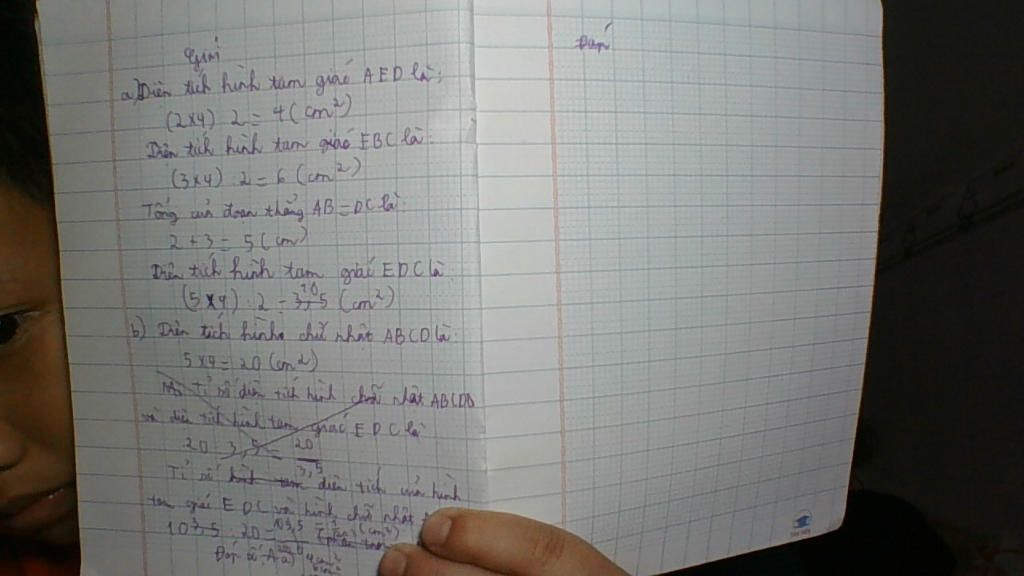 Giải
a) Diện tích hình tam giác AED là:
(2x4) : 2 = 4 (cm²)
Diện tích hình tam giác EBC là:
(3x4) : 2 = 6 (cm²)
Tổng của đoạn thẳng AB = DC là:
2 + 3 = 5 (cm)
Diện tích hình tam giác EDC là:
(5x4) : 2 = 10 (cm²)
b) Diện tích hình chữ nhật ABCD là:
5x4 = 20 (cm²)
Tỉ số diện tích hình chữ nhật ABCD
và diện tích hình tam giác EDC là
20 3,5 = 20
3,5
Tỉ số diện tích của hình
tam giác EDC và hình chữ nhật
10 20
Đáp số: a)
Đáp